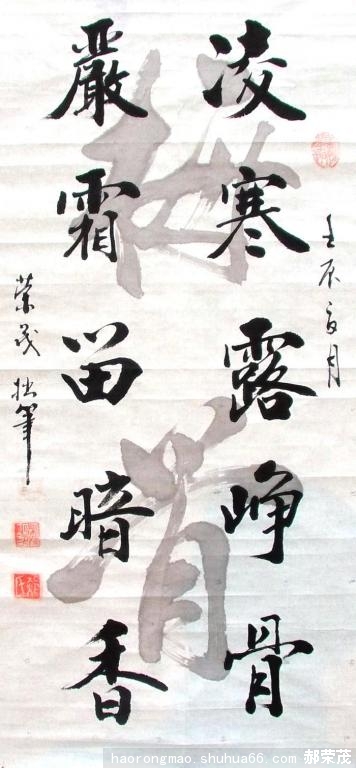 壬辰夏月
凌寒露峥骨
嚴霜留暗香
荣茂拙筆
haorongmao.shuhua66.com 郝荣茂